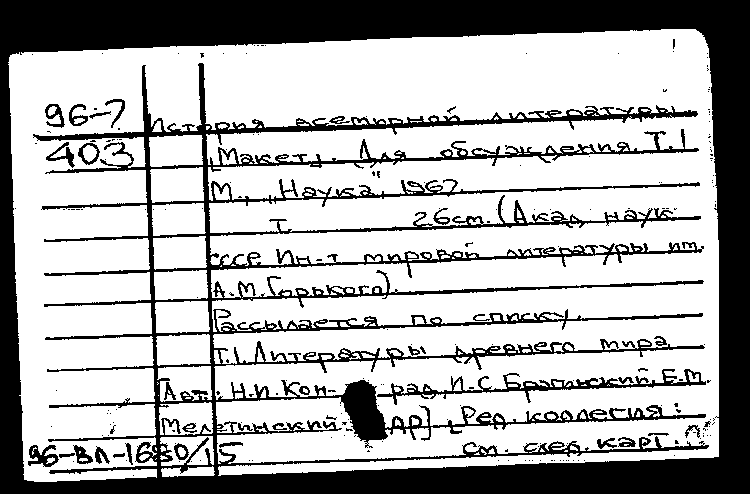 96-7 История всемирной литературы.
403 [Макет]. Для обсуждения. Т. I
М., „Наука", 1967.
т. 26 см. (Акад. наук
СССР. Ин-т мировой литературы им.
А.М. Горького).
Рассылается по списку.
Т.I. Литературы древнего мира
[Авт.: Н.И. Кон- рад, И.С. Брагинский, Е.М.
Мелетинский др]. [Ред. коллегия:
96-ВЛ-1680/15 См. след. карт.